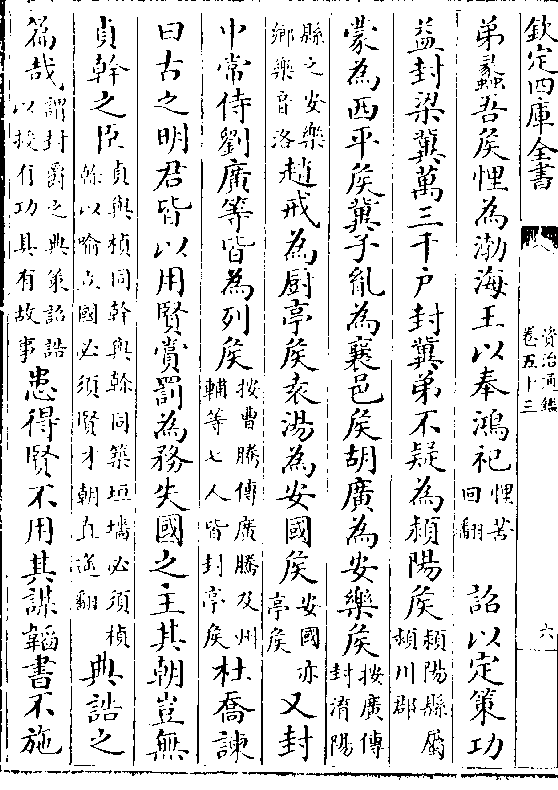 欽定四庫全書
資治通鑑
卷五十三
六
弟蠡吾矦悝為渤海王以奉鴻祀悝苦回翻 詔以定策功
益封梁冀萬三千户封冀弟不疑為潁陽矦潁陽縣屬潁川郡
蒙為西平矦冀子𦙍為襄邑矦胡廣為安樂矦按廣傳封淯陽
縣之安樂鄉樂音洛趙戒為厨亭矦袁湯為安國矦安國亦亭矦又封
中常侍劉廣等皆為列矦按曹騰傳廣騰及州輔等七人皆封亭矦杜喬諫
曰古之明君皆以用賢賞罰為務失國之主其朝豈無
貞幹之臣貞與楨同幹與榦同築垣墻必須楨榦以喻立國必須賢才朝直遥翻典誥之
篇哉謂封爵之典策詔誥以授有功具有故事患得賢不用其謀韜書不施